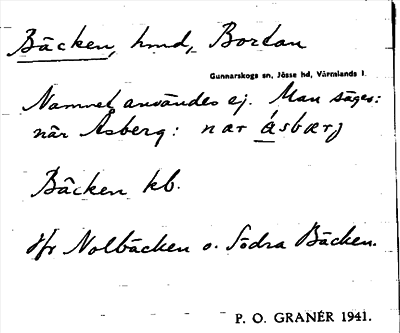 Bäcken, hmd, Bortan
Gunnarskogs sn, Jösse hd, Värmlands l.
Namnet användes ej. Man säger:
när Åsberg: nar åsbærj
Bäcken kb.
Jfr Nolbäcken o. Södra Bäcken.
P. O. GRANÉR 1941.